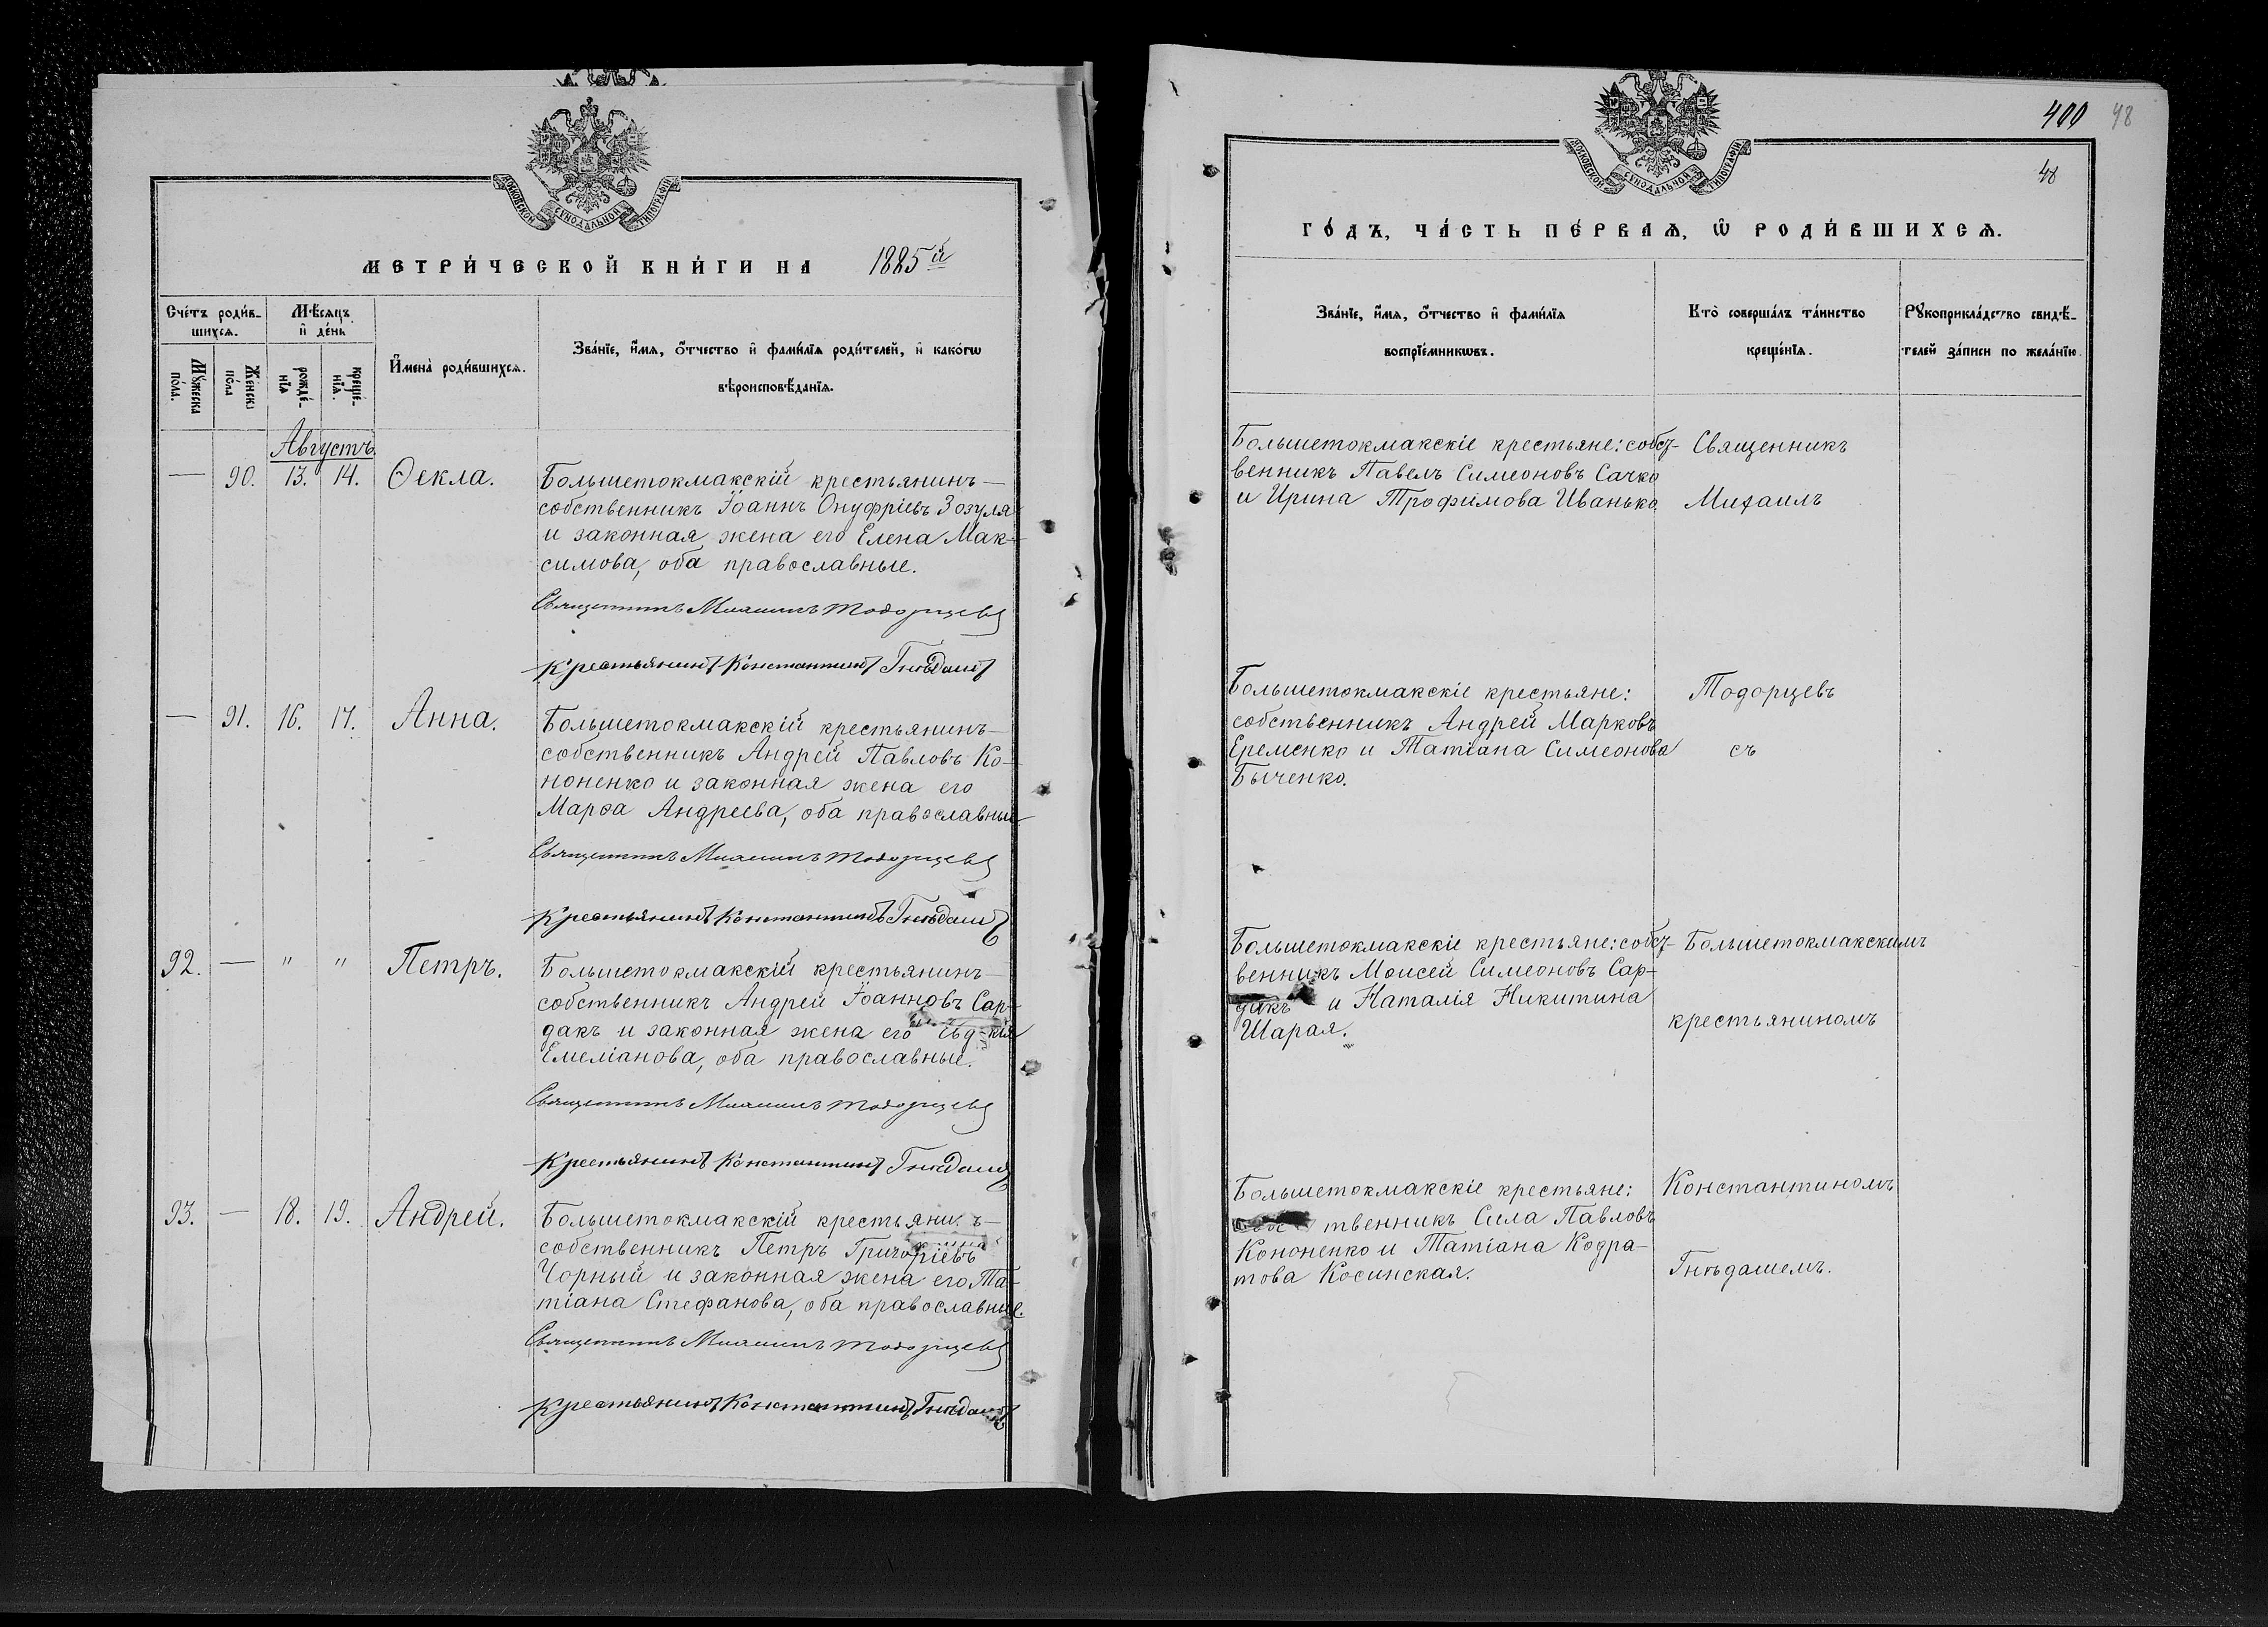 МОСКОВСКОЙ СѴНОДАЛЬНОЙ ТИПОГРАФІИ
МЕТРИ́ЧЕСКОЙ КНИ́ГИ НА 1885й
Сче́тъ роди́в-
шихся.
Мѣ́сяцъ
и де́нь
Мꙋ́жеска
по́ла.
Же́нска
по́ла
рожде́-
нїѧ
креще́-
нїѧ.
И҆мена̀ роди́вшихсѧ.
Зва́нїе, и҆́мѧ, ѻ҆́тчество и҆ фами́лїѧ роди́телей, и҆ како́гѡ
вѣроисповѣ́данїѧ.
Августъ.
— 90. 13. 14. Ѳекла.
Большетокмакскій крестьянинъ—
собственникъ Іоаннъ Онуфріевъ Зозуля
и законная жена его Елена Мак-
симова, оба православные.
Священникъ Михаилъ Тодорцевъ
Крестьянинъ Константинъ Гнѣдашъ
— 91. 16. 17. Анна.
Большетокмакскій крестьянинъ—
собственникъ Андрей Павловъ Ко-
ноненко и законная жена его
Марѳа Андреева, оба православные
Священникъ Михаилъ Тодорцевъ
Крестьянинъ Константинъ Гнѣдашъ
92. — " " Петръ.
Большетокмакскій крестьянинъ—
собственникъ Андрей Іоанновъ Сар-
дакъ и законная жена его
Емеліанова, оба православные.
Священникъ Михаилъ Тодорцевъ
Крестьянинъ Константинъ Гнѣдашъ
93. — 18. 19. Андрей.
Большетокмакскій крестьяни ъ—
собственникъ Петръ Григоріевъ
Чорный и законная жена его Та-
тіана Стефанова, оба православные.
Священникъ Михаилъ Тодорцевъ
Крестьянинъ Константинъ Гнѣдашъ
400 48
48
МОСКОВСКОЙ СѴНОДАЛЬНОЙ ТИПОГРАФІИ
ГО́ДЪ, ЧА́СТЬ ПЕ́РВАѦ, Ѽ РОДИ́ВШИХСѦ.
Зва́нїе, и҆́мѧ, ѻ҆́тчество и҆ фами́лїѧ
воспрїе́мникѡвъ.
Кто̀ соверша́лъ та́инство
креще́нїѧ.
Рꙋкоприкла́дство свидѣ́-
телей за́писи по жела́нїю.
Большетокмакскіе крестьяне: собст-
венникъ Павелъ Симеоновъ Сачко
и Ирина Трофимова Иванько.
Священникъ
Михаилъ
Большетокмакскіе крестьяне:
собственникъ Андрей Марковъ
Еременко и Татіана Симеонова
Быченко.
Тодорцевъ
съ
Большетокмакскіе крестьяне: собст-
венникъ Моисей Симеоновъ Сар-
дакъ и Наталія Никитина
Шарая.
Большетокмакскимъ
крестьяниномъ
Большетокмакскіе крестьяне:
твенникъ Сила Павловъ
Кононенко и Татіана Кодра-
това Косинская.
Константиномъ
Гнѣдашемъ.